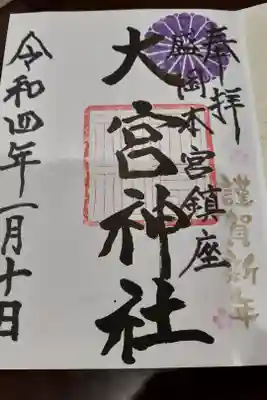 奉拝
盛岡本宮鎮座
謹賀新年
大宮神社
令和四年一月十日